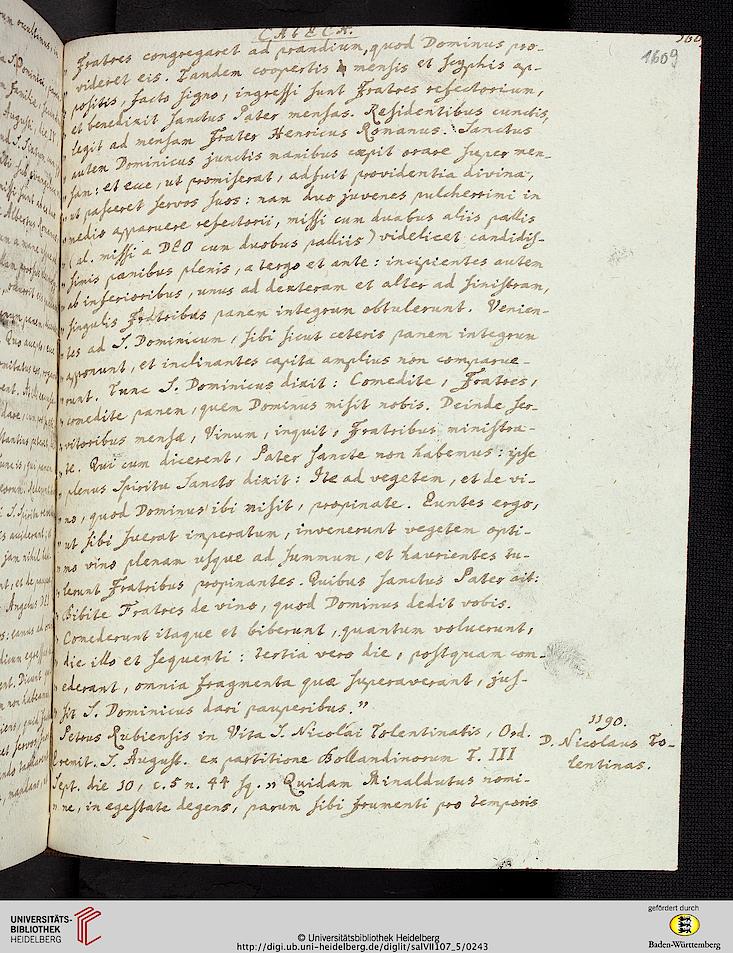 CAETCA.
1609
„ Fratres congregaret ad prandium, quod Dominus pro-
„ videret eis. Tandem coopertis mensis et scyphis ap-
„ positis, facto signo, ingressi sunt Fratres refectorium,
„ et benedixit sanctus Pater mensas. Residentibus cunctis,
„ legit ad mensam Frater Henricus Romanus. Sanctus
„ autem Dominicus junctis manibus cœpit orare super men-
„ sam: et ecce, ut promiserat, adfuit providentia divina,
„ ut pasceret servos suos: nam duo juvenes pulcherrimi in
„ medio apparuere refectorii, missi cum duabus aliis pallis
„ (al. missi a DEO cum duobus palliis) videlicet candidis-
„ simis panibus plenis, a tergo et ante: incipientes autem
„ ab inferioribus, unus ad dexteram et alter ad sinistram,
„ singulis Fratribus panem integrum obtulerunt. Venien-
„ tes ad S. Dominicum, sibi sicut ceteris panem integrum
„ apponunt, et inclinantes capita amplius non comparue-
„ runt. Tunc S. Dominicus dixit: Comedite, Fratres,
„ comedite panem, quem Dominus misit nobis. Deinde ser-
„ vitoribus mensæ, Vinum, inquit, Fratribus ministra-
„ te. Qui cum dicerent, Pater sancte non habemus: ipse
„ plenus Spiritu Sancto dixit: Ite ad vegetem, et de vi-
„ no, quod Dominus ibi misit, propinate. Euntes ergo,
„ ut sibi fuerat imperatum, invenerunt vegetem opti-
„ mo vino plenam usque ad summum, et haurientes tu-
„ lerunt Fratribus propinantes. Quibus sanctus Pater ait:
„ Bibite Fratres de vino, quod Dominus dedit vobis.
„ Comederunt itaque et biberunt, quantum voluerunt,
„ die illo et sequenti: tertia vero die, postquam com-
„ ederant, omnia fragmenta quæ superaverant, jus-
„ sit S. Dominicus dari pauperibus.”
Petrus Rubiensis in Vita S. Nicolai Tolentinatis, Ord.
Eremit. S. August. ex partitione Bollandinorum T. III
Sept. die 10, c. 5 n. 44 sq. „ Quidam Minaldutus nomi-
„ ne, in egestate degens, parum sibi frumenti pro temporis
1190.
D. Nicolaus To-
lentinas.
UNIVERSITÄTS-
BIBLIOTHEK
HEIDELBERG
© Universitätsbibliothek Heidelberg
http://digi.ub.uni-heidelberg.de/diglit/salVII107_5/0243
gefördert durch
Baden-Württemberg